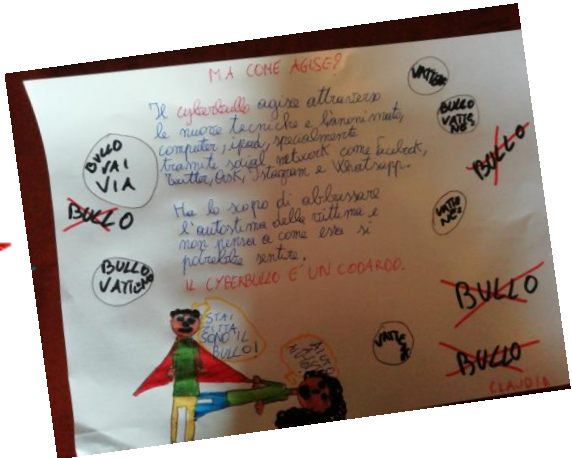 MA COME AGISE?
Il cyberbullo agise attraverso
le nuove tecniche e l'anonimato,
computer, ipad, specialmente
tramite social network come facebook,
twitter, ask, Istagram e Whatsapp.
Ha lo scopo di abbassare
l'autostima della vittima e
non pensa a come essa si
potrebbe sentire.
IL CYBERBULLO E' UN CODARDO.
BULLO
VAI
VIA
BULLO
BULLO
VATTENE
BULLO
BULLO
BULLO
BULLO
STAI
ZITTA
SONO IL
BULLO!
AIUTO
CLAUDIA